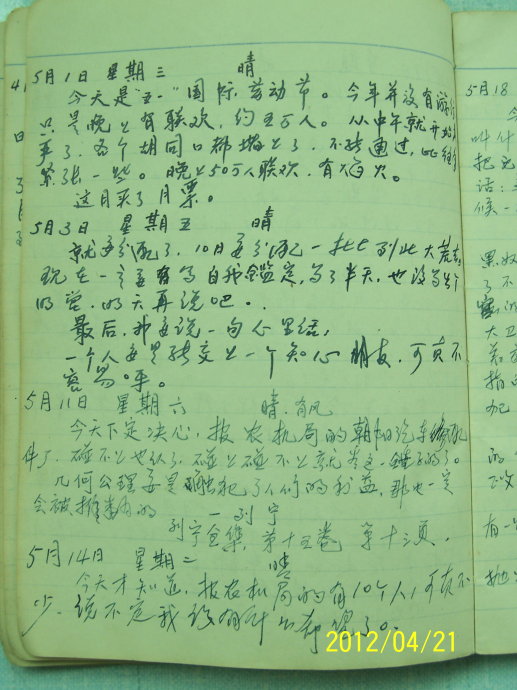 5月1日 星期三 晴
今天是"五一"国际劳动节。今年并没有游行
只是晚上有联欢,约五万人。从中午就开始
事了,各个胡同口都堵上了,不能通过,比
紧张一些。晚上50万人联欢,有焰火。
这月买了月票。
5月3日 星期五 晴
就要分配了,10日要分配一批七到北大荒去。
现在一定要有写自我鉴定,写了半天,也没写出个
明天再说吧。
最后,我要说一句心里话,
一个人要是能交上一个知心朋友,可真不
容易呀。
5月11日 星期六 晴.有风
今天下定决心,报农机局的朝阳汽车修配
件了.碰不上也认了.碰上碰不上就
几何公理要是触犯了人们的利益,那也一定
会被推翻的
—列宁
列宁全集,第十五卷 第十三页.
5月14日 星期二 晴
今天才知道,报农机局的有10个人,可真不
少.说不定我没有什么希望了。
2012/04/21
5月18
今
叫什
把
话:
候一
黑
了不
大卫
指
配
的
有一